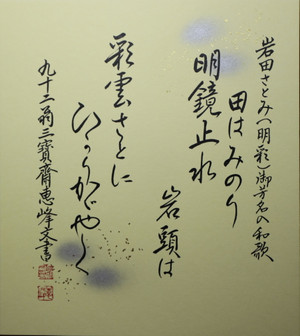 岩田さとみ(明彩)御芳名入和歌
田はみのり
明鏡止水
岩頭は
彩雲さとに
ひかりかがやく
九十二翁三寶齋恵峰文書